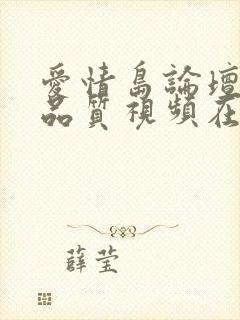 愛情島論壇
品質視頻在
薛莹